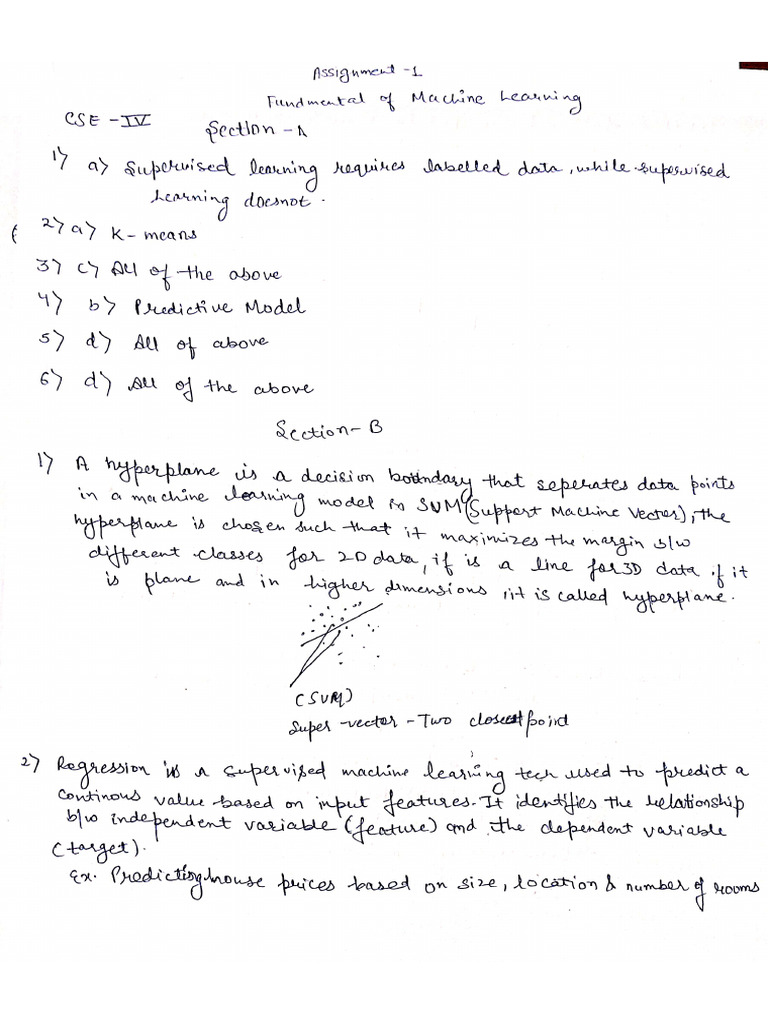 Assignment-1
Fundmental of Machine Learning
CSE-IV
Section-A
1) a) Supervised learning requires labelled data, while supervised
Learning doesnot.
2) a) K-means
3) c) All of the above
4) b) Predictive Model
5) d) All of above
6) d) All of the above
Section-B
1) A hyperplane is a decision boundary that seperates data points
in a machine learning model is SVM (Support Machine Vector), the
hyperplane is chosen such that it maximizes the margin b/w
different classes for 2D data, if is a line for 3D data if it
is plane and in higher dimensions, it is called hyperplane.
(SVM)
Super-vector - Two closest point
2) Regression is a supervised machine learning tech used to predict a
continous value based on input features. It identifies the relationship
b/w independent variable (feature) and the dependent variable
(target).
Ex. Predicting house prices based on size, location & number of rooms